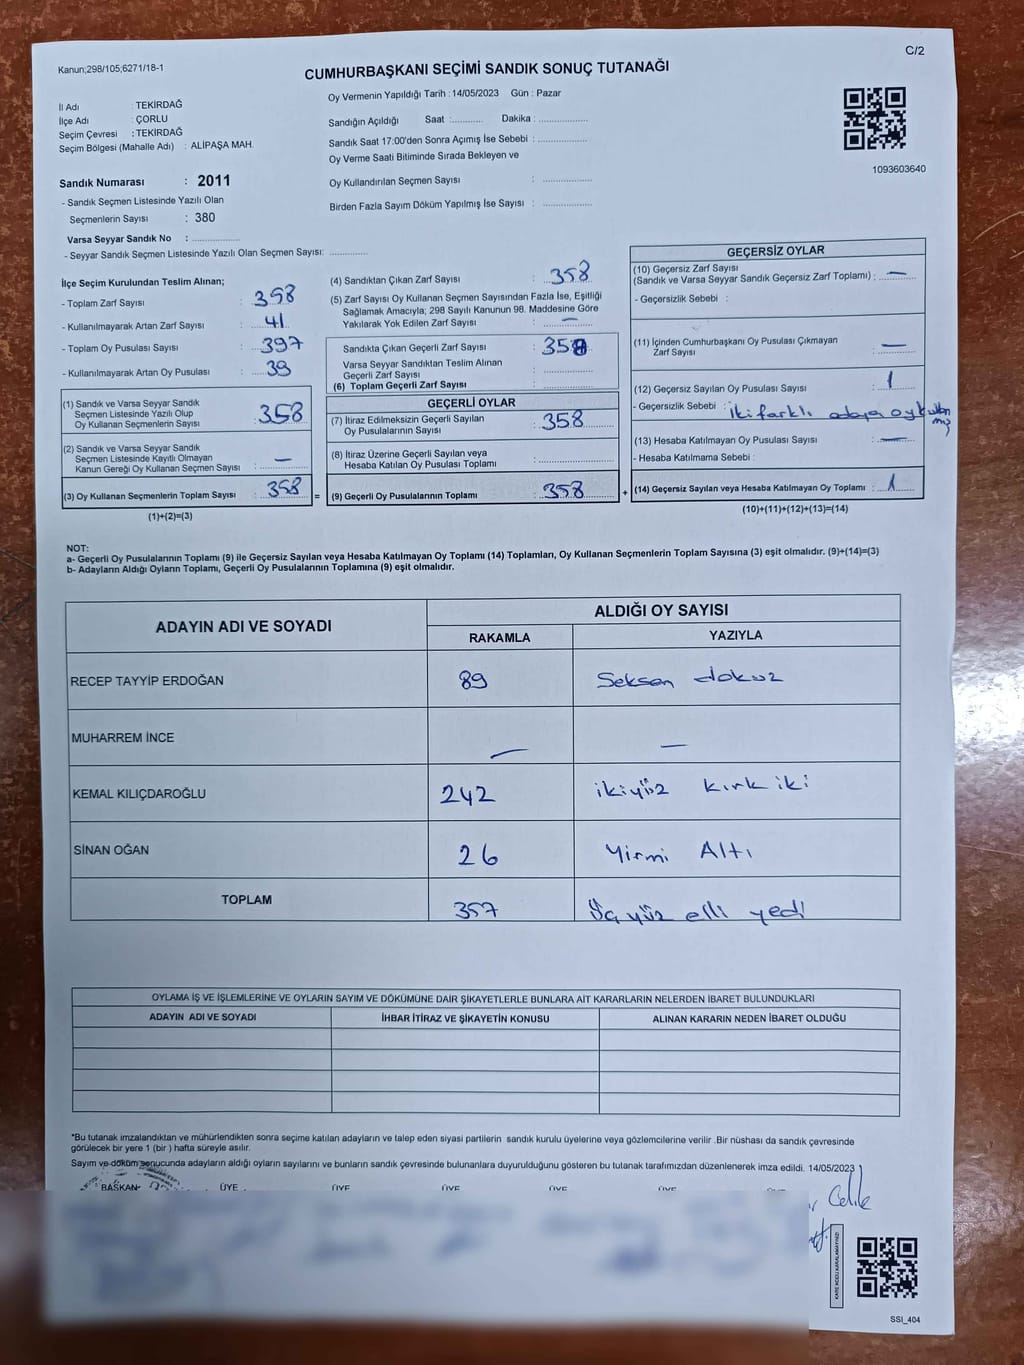 C/2
Kanun;298/105;6271/18-1
CUMHURBAŞKANI SEÇİMİ SANDIK SONUÇ TUTANAĞI
Oy Vermenin Yapıldığı Tarih : 14/05/2023 Gün : Pazar
İl Adı : TEKİRDAĞ
İlçe Adı : ÇORLU
Seçim Çevresi : TEKİRDAĞ
Seçim Bölgesi (Mahalle Adı) : ALİPAŞA MAH.
Sandığın Açıldığı Saat :........... Dakika : .................
Sandık Saat 17:00'den Sonra Açımış İse Sebebi : .................
Oy Verme Saati Bitiminde Sırada Bekleyen ve
Oy Kullandırılan Seçmen Sayısı : .................
Birden Fazla Sayım Döküm Yapılmış İse Sayısı : .................
1093603640
Sandık Numarası : 2011
- Sandık Seçmen Listesinde Yazılı Olan
Seçmenlerin Sayısı : 380
Varsa Seyyar Sandık No : .................
- Seyyar Sandık Seçmen Listesinde Yazılı Olan Seçmen Sayısı: .............
İlçe Seçim Kurulundan Teslim Alınan;
- Toplam Zarf Sayısı : 398
- Kullanılmayarak Artan Zarf Sayısı : 41
- Toplam Oy Pusulası Sayısı : 397
- Kullanılmayarak Artan Oy Pusulası : 39
(1) Sandık ve Varsa Seyyar Sandık
Seçmen Listesinde Yazılı Olup
Oy Kullanan Seçmenlerin Sayısı : 358
(2) Sandık ve Varsa Seyyar Sandık
Seçmen Listesinde Kayıtlı Olmayan
Kanun Gereği Oy Kullanan Seçmen Sayısı : —
(3) Oy Kullanan Seçmenlerin Toplam Sayısı : 358 =
(1)+(2)=(3)
(4) Sandıktan Çıkan Zarf Sayısı : 358
(5) Zarf Sayısı Oy Kullanan Seçmen Sayısından Fazla İse, Eşitliği
Sağlamak Amacıyla; 298 Sayılı Kanunun 98. Maddesine Göre
Yakılarak Yok Edilen Zarf Sayısı : —
Sandıkta Çıkan Geçerli Zarf Sayısı : 358
Varsa Seyyar Sandıktan Teslim Alınan
Geçerli Zarf Sayısı : .................
(6) Toplam Geçerli Zarf Sayısı : .................
GEÇERLİ OYLAR
(7) İtiraz Edilmeksizin Geçerli Sayılan
Oy Pusulalarının Sayısı : 358
(8) İtiraz Üzerine Geçerli Sayılan veya
Hesaba Katılan Oy Pusulası Toplamı : .................
(9) Geçerli Oy Pusulalarının Toplamı : 358 +
GEÇERSİZ OYLAR
(10) Geçersiz Zarf Sayısı
(Sandık ve Varsa Seyyar Sandık Geçersiz Zarf Toplamı) : —
- Geçersizlik Sebebi :
(11) İçinden Cumhurbaşkanı Oy Pusulası Çıkmayan
Zarf Sayısı : —
(12) Geçersiz Sayılan Oy Pusulası Sayısı : 1
- Geçersizlik Sebebi : iki farklı adaya oy
(13) Hesaba Katılmayan Oy Pusulası Sayısı : —
- Hesaba Katılmama Sebebi :
(14) Geçersiz Sayılan veya Hesaba Katılmayan Oy Toplamı : 1
(10)+(11)+(12)+(13)=(14)
NOT:
a- Geçerli Oy Pusulalarının Toplamı (9) ile Geçersiz Sayılan veya Hesaba Katılmayan Oy Toplamı (14) Toplamları, Oy Kullanan Seçmenlerin Toplam Sayısına (3) eşit olmalıdır. (9)+(14)=(3)
b- Adayların Aldığı Oyların Toplamı, Geçerli Oy Pusulalarının Toplamına (9) eşit olmalıdır.
ADAYIN ADI VE SOYADI ALDIĞI OY SAYISI
RAKAMLA YAZIYLA
RECEP TAYYİP ERDOĞAN 89 Seksen dokuz
MUHARREM İNCE — —
KEMAL KILIÇDAROĞLU 242 ikiyüz kırk iki
SİNAN OĞAN 26 Yirmi Altı
TOPLAM 357 Üç yüz elli yedi
OYLAMA İŞ VE İŞLEMLERİNE VE OYLARIN SAYIM VE DÖKÜMÜNE DAİR ŞİKAYETLERLE BUNLARA AİT KARARLARIN NELERDEN İBARET BULUNDUKLARI
ADAYIN ADI VE SOYADI İHBAR İTİRAZ VE ŞİKAYETİN KONUSU ALINAN KARARIN NEDEN İBARET OLDUĞU
*Bu tutanak imzalandıktan ve mühürlendikten sonra seçime katılan adayların ve talep eden siyasi partilerin sandık kurulu üyelerine veya gözlemcilerine verilir .Bir nüshası da sandık çevresinde
görülecek bir yere 1 (bir ) hafta süreyle asılır.
Sayım ve döküm sonucunda adayların aldığı oyların sayılarını ve bunların sandık çevresinde bulunanlara duyurulduğunu gösteren bu tutanak tarafımızdan düzenlenerek imza edildi. 14/05/2023
BAŞKAN ÜYE ÜYE ÜYE ÜYE ÜYE
Çelik
KARE KODU KARALAMAYINIZ!
SSI_404